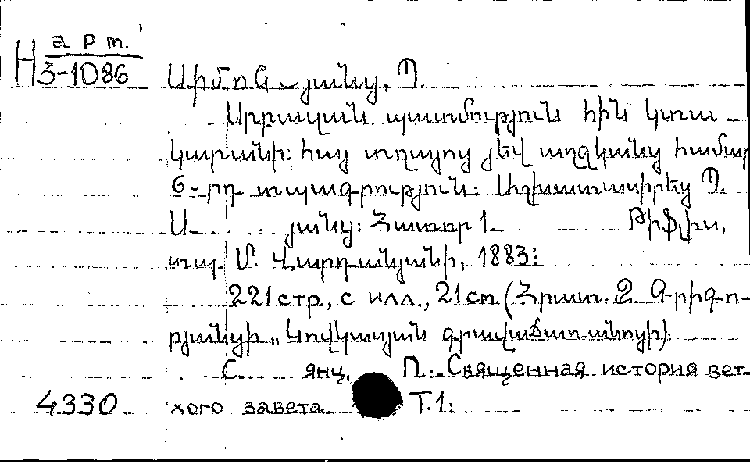 арт.
H 3-1086
Սիմոն-յանց, Պ.
Սրբազան պատմություն հին կտա-
կարանի: հայ տղայոց յեվ աղջկանց համար
6-րդ տպագրություն: Աշխատասիրեց Պ.
Ս. յանց: Հատոր 1. Թիֆլիս,
տպ. Մ. Վարդանյանի, 1883:
221 стр., с илл., 21 см (Հրատ. Զ. Գրիգո-
րյանցի „Կովկասյան գրավաճառանոցի)
С янц, П. Священная история вет-
4330 хого завета Т.1.